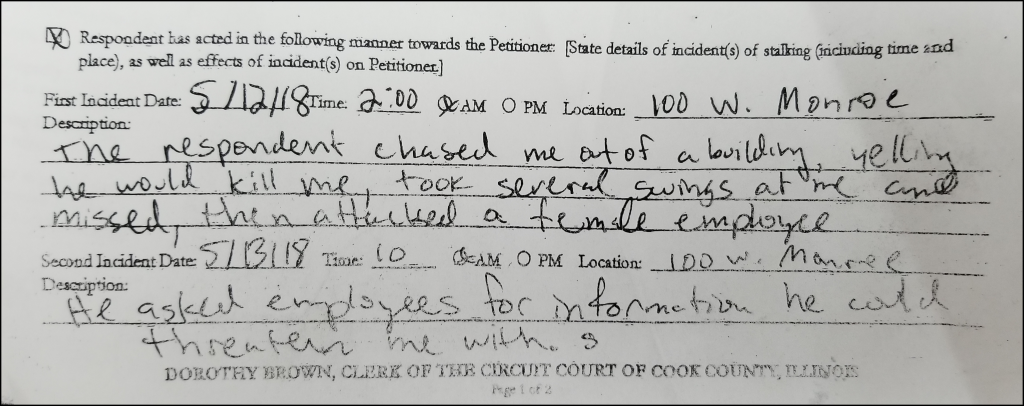 ☒ Respondent has acted in the following manner towards the Petitioner: [State details of incident(s) of stalking (including time and
place), as well as effects of incident(s) on Petitioner.]
First Incident Date: 5/12/18 Time: 2:00 ☒ AM O PM Location: 100 W. Monroe
Description:
The respondent chased me out of a building, yelling
he would kill me, took several swings at me and
missed, then attacked a female employee
Second Incident Date: 5/13/18 Time: 10 ☒ AM O PM Location: 100 W. Monroe
Description:
He asked employees for information he could
threaten me with.
DOROTHY BROWN, CLERK OF THE CIRCUIT COURT OF COOK COUNTY, ILLINOIS
Page 1 of 2